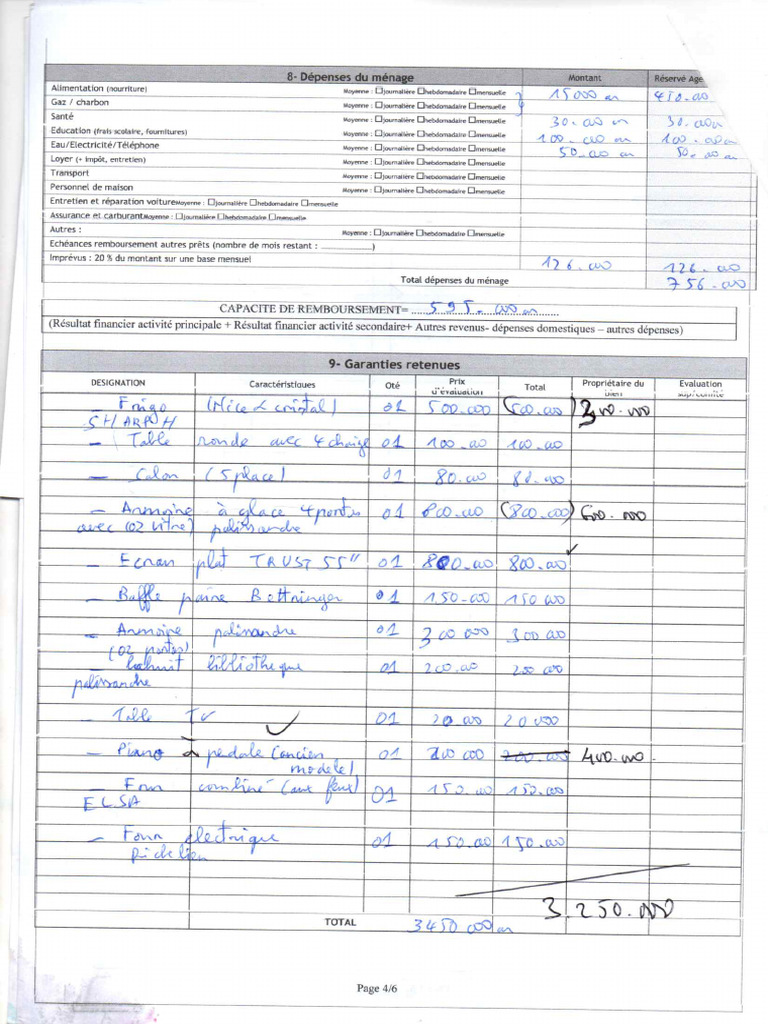 8- Dépenses du ménage Montant Réservé Age
Alimentation (nourriture) Moyenne : ☐journalière ☐hebdomadaire ☐mensuelle 15000 ar 450.00
Gaz / charbon Moyenne : ☐journalière ☐hebdomadaire ☐mensuelle
Santé Moyenne : ☐journalière ☐hebdomadaire ☐mensuelle 30.000 ar 30.000
Education (frais scolaire, fournitures) Moyenne : ☐journalière ☐hebdomadaire ☐mensuelle 100.000 ar 100.000
Eau/Electricité/Téléphone Moyenne : ☐journalière ☐hebdomadaire ☐mensuelle 50.000 ar 50.000 ar
Loyer (+ impôt, entretien) Moyenne : ☐journalière ☐hebdomadaire ☐mensuelle
Transport Moyenne : ☐journalière ☐hebdomadaire ☐mensuelle
Personnel de maison Moyenne : ☐journalière ☐hebdomadaire ☐mensuelle
Entretien et réparation voiture Moyenne : ☐journalière ☐hebdomadaire ☐mensuelle
Assurance et carburant Moyenne : ☐journalière ☐hebdomadaire ☐mensuelle
Autres : Moyenne : ☐journalière ☐hebdomadaire ☐mensuelle
Echéances remboursement autres prêts (nombre de mois restant : ............)
Imprévus : 20 % du montant sur une base mensuel 126.000 126.000
Total dépenses du ménage 756.000
CAPACITE DE REMBOURSEMENT= 595.000 ar
(Résultat financier activité principale + Résultat financier activité secondaire+ Autres revenus- dépenses domestiques – autres dépenses)
9- Garanties retenues
DESIGNATION Caractéristiques Qté Prix d'évaluation Total Propriétaire du bien Evaluation sup/comité
- Frigo (Nice & cristal) 01 500.000 (500.000) 300.000
SHARP
- Table ronde avec 4 chaise 01 100.000 100.000
- Salon (5 place) 01 80.000 80.000
- Armoire à glace 4 portes 01 800.000 (800.000) 600.000
avec (02 vitre) palissandre
- Ecran plat TRUST 55" 01 800.000 800.000
- Baffle paire Bettringer 01 150.000 150 000
- Armoire palissandre 01 300 000 300 000
(02 portes)
- bahut bibliotheque 01 200.000 200 000
palissandre
- Table TV 01 20 000 20 000
- Piano à pedale (ancien 01 200 000 200.000 400.000
modele)
- Four combiné (aux feux) 01 150.000 150.000
ELSA
- Four electrique 01 150.000 150.000
3.250.000
TOTAL 3450 000 ar
Page 4/6